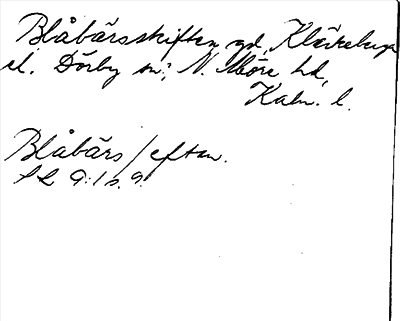 Blåbärsskiften, gd, Kläckeberga
el. Dörby sn; N. Möre hd,
Kalm. l.
Blåbärs/eften.
SL 9:1 s. 9.